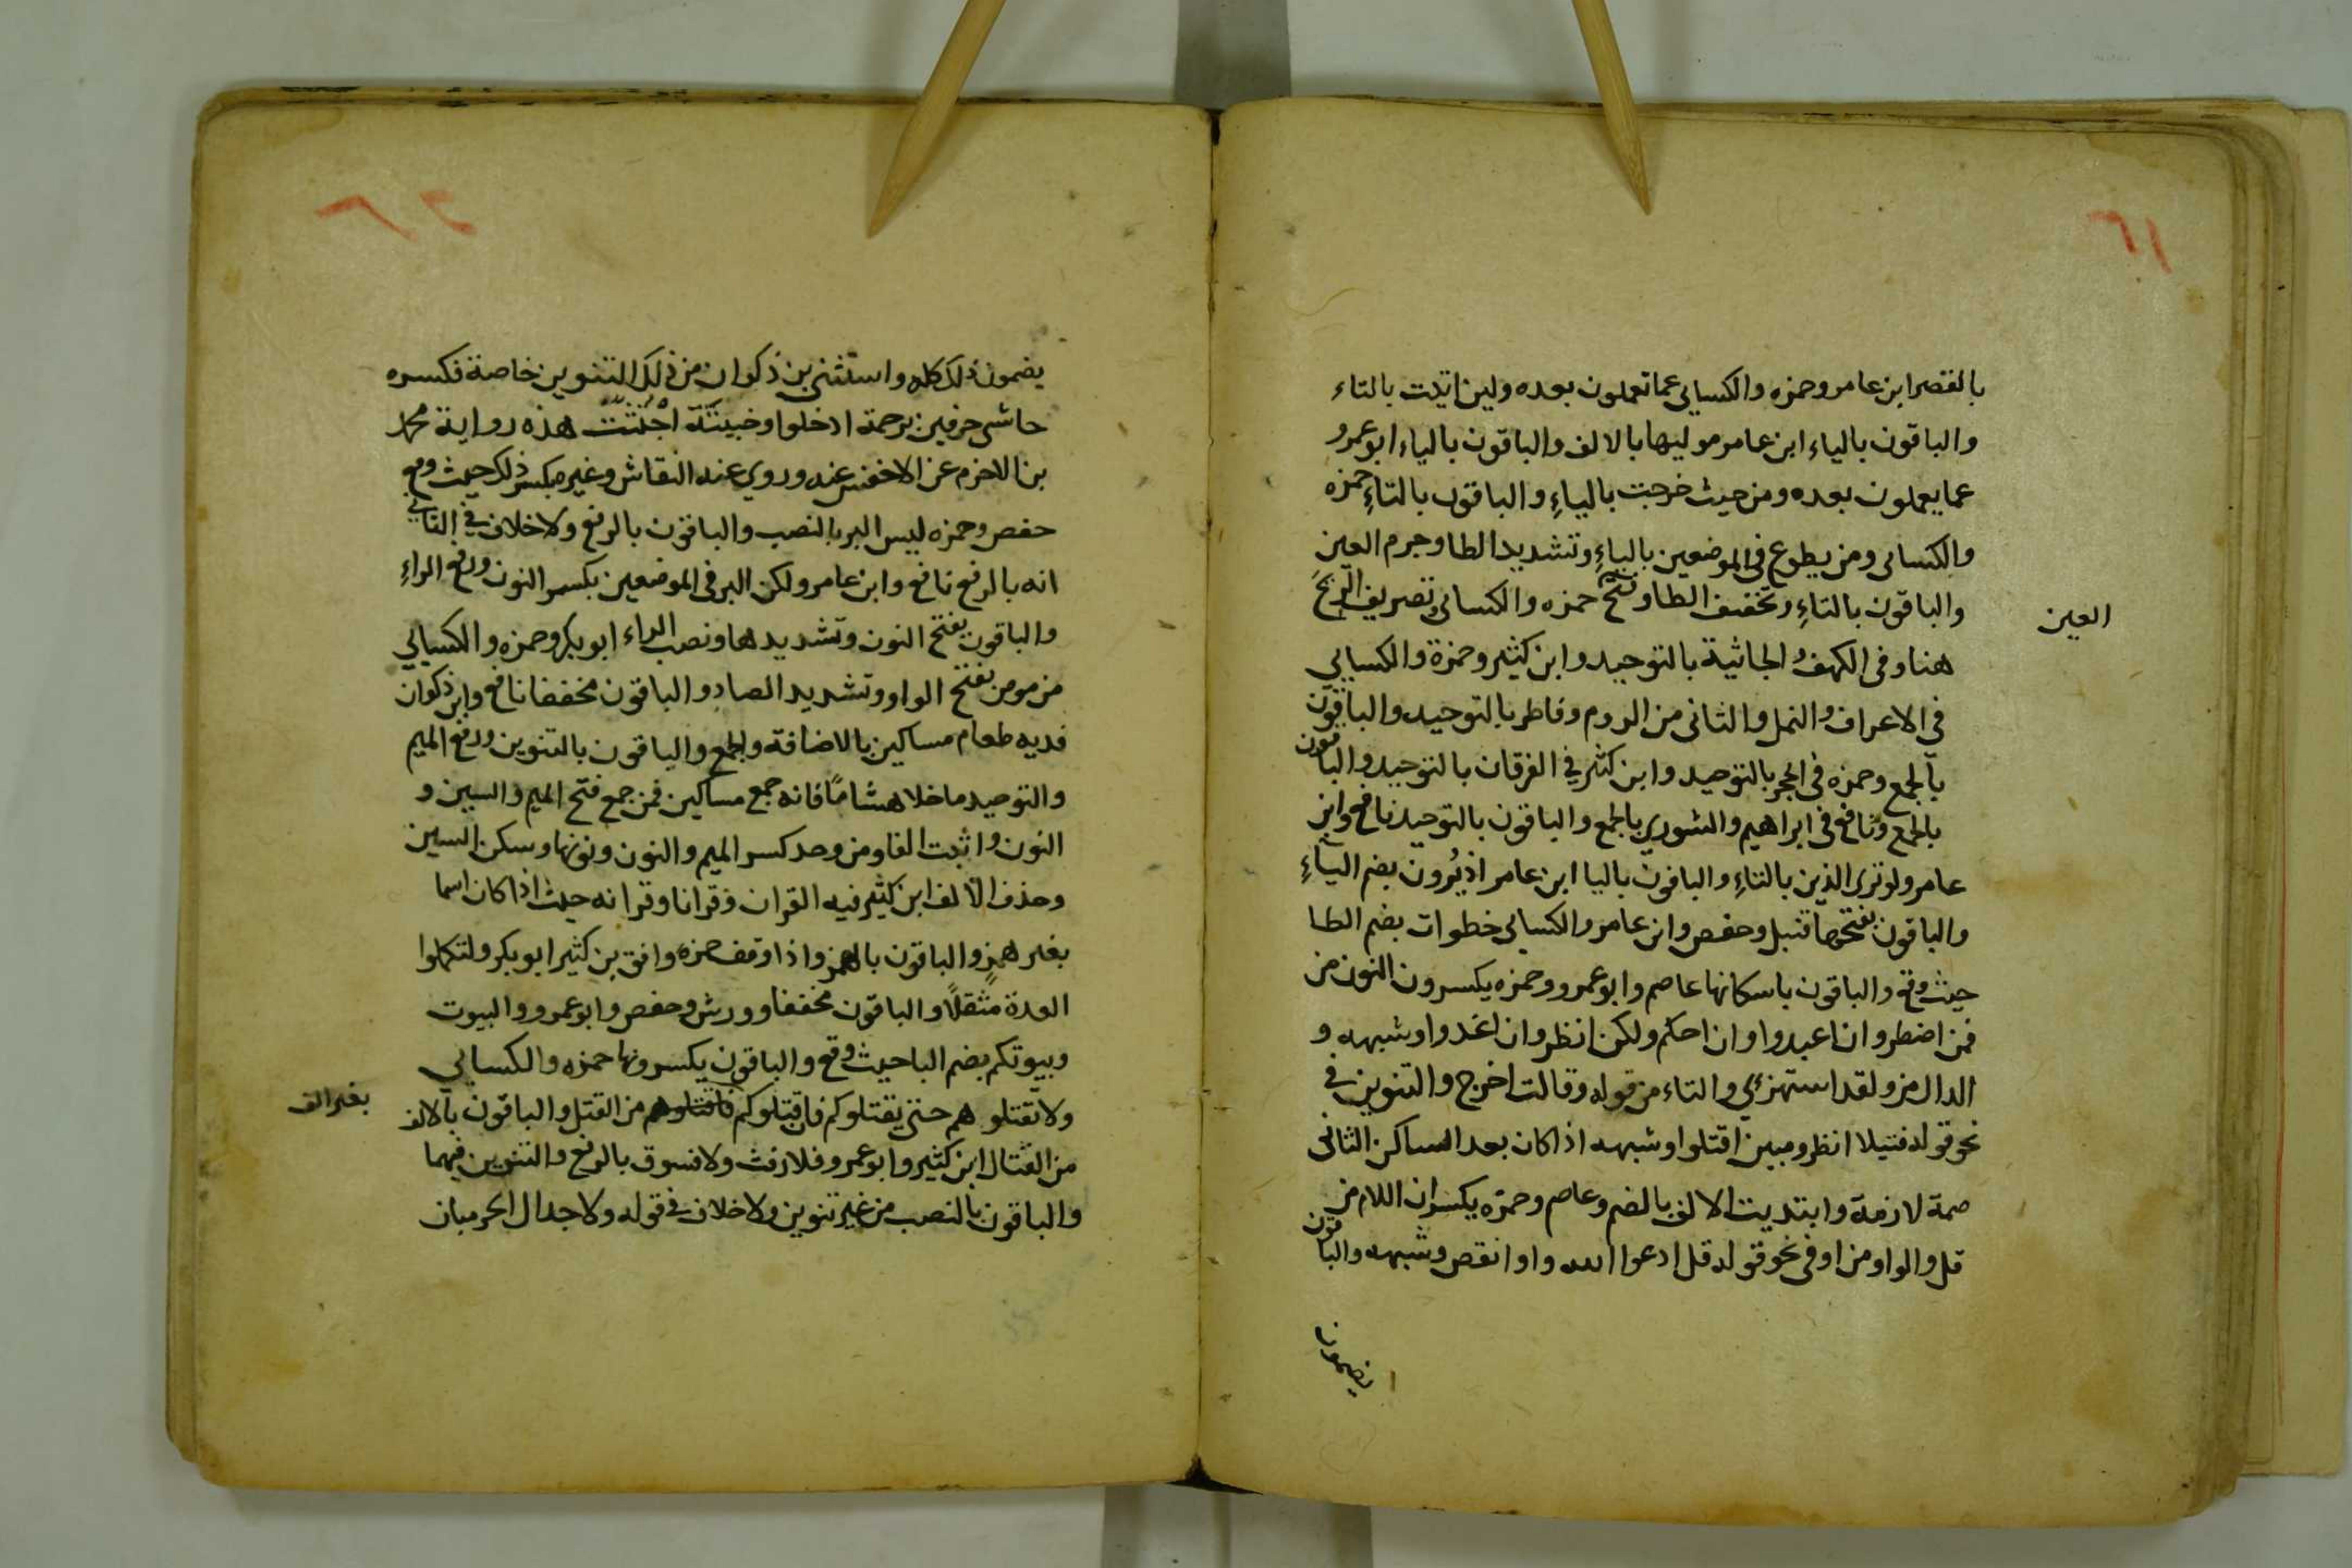 ٢١
بالقصر ابن عامر وحمزه والكسايى عما تعملون بعده ولين اتيت بالتاء
والباقون بالياء ابن عامر موليها بالالف والباقون بالياء ابو عمرو
عما يعملون بعده ومن حيث خرجت بالياءِ والباقون بالتاءِ حمزه
والكسائى ومن يطوع فى الموضعين بالياءِ وتشديد الطا وجزم العين
العين
والباقون بالتاءِ وتخفيف الطا وفتح حمزه والكسائى وتصريف الريح
هنا وفى الكهف والجاثية بالتوحيد وابن كثير وحمزة والكسايي
فى الاعراف والنمل والثانى من الروم وفاطر بالتوحيد والباقون
بالجمع وحمزه فى الحجر بالتوحيد وابن كثير في الفرقان بالتوحيد والباقون
بالجمع ونافع فى ابراهيم والشوري بالجمع والباقون بالتوحيد نافع وابن
عامر ولو ترى الذين بالتاءِ والباقون باليا ابن عامر اذ يُرون بضم الياءِ
والباقون بفتحها قنبل وحفص وابن عامر والكسايى خطوات بضم الطا
حيث وقع والباقون باسكانها عاصم وابو عمرو وحمزه يكسرون النون من
فمن اضطر وان اعبدوا وان احكم ولكن انظر وان اغدوا وشبهه و
الدال من ولقد استهزي والتاء من قوله وقالت اخرج والتنوين في
نحو قوله فتيلا انظر ومبين اقتلوا وشبهه اذا كان بعد الساكن الثانى
ضمة لازمة وابتديت الالف بالضم وعاصم وحمزه يكسران اللام من
قل والواو من او فى نحو قوله قل ادعوا الله واو انقص وشبهه والباقون
يضمون
٢٢
يضمون ذلك كله واستثنى بن ذكوان من ذلك التنوين خاصة فكسره
حاشى حرفين برحمة ادخلوا وخبيثة اجتثت هذه رواية محمد
بن الاخرم عن الاخفش عنه وروي عنه النقاش وغيره بكسر ذلك حيث وقع
حفص وحمزه ليس البر بالنصب والباقون بالرفع ولا خلاف في الثاني
انه بالرفع نافع وابن عامر ولكن البر فى الموضعين بكسر النون ورفع الراءِ
والباقون بفتح النون وتشديدها ونصب الراء ابو بكر وحمزه والكسيايي
من موص بفتح الواو وتشديد الصاد والباقون مخففا نافع وابن ذكوان
فديه طعام مساكين بالاضافة والجمع والباقون بالتنوين ورفع الميم
والتوحيد ما خلا هشامًا فانه جمع مساكين فمن جمع فتح الميم والسين و
النون واثبت الفا ومن وحد كسر الميم والنون ونونها وسكن السين
وحذف الالف ابن كثير فيه القران وقرانا وقرانه حيث اذا كان اسما
بغير همزٍ والباقون بالهمز واذا وقف حمزه وافق بن كثير ابو بكر ولتكملوا
العدة مثقلًا والباقون مخففا وورش وحفص وابو عمرو والبيوت
وبيوتكم بضم البا حيث وقع والباقون يكسرونها حمزه والكسايي
ولا تقتلوهم حتى يقتلوكم فان قتلوكم فاقتلوهم من القتل والباقون بالالف
بغير الف
من القتال ابن كثير وابو عمرو فلا رفث ولا فسوق بالرفع والتنوين فيهما
والباقون بالنصب من غير تنوين ولا خلاف في قوله ولا جدال الحرميان